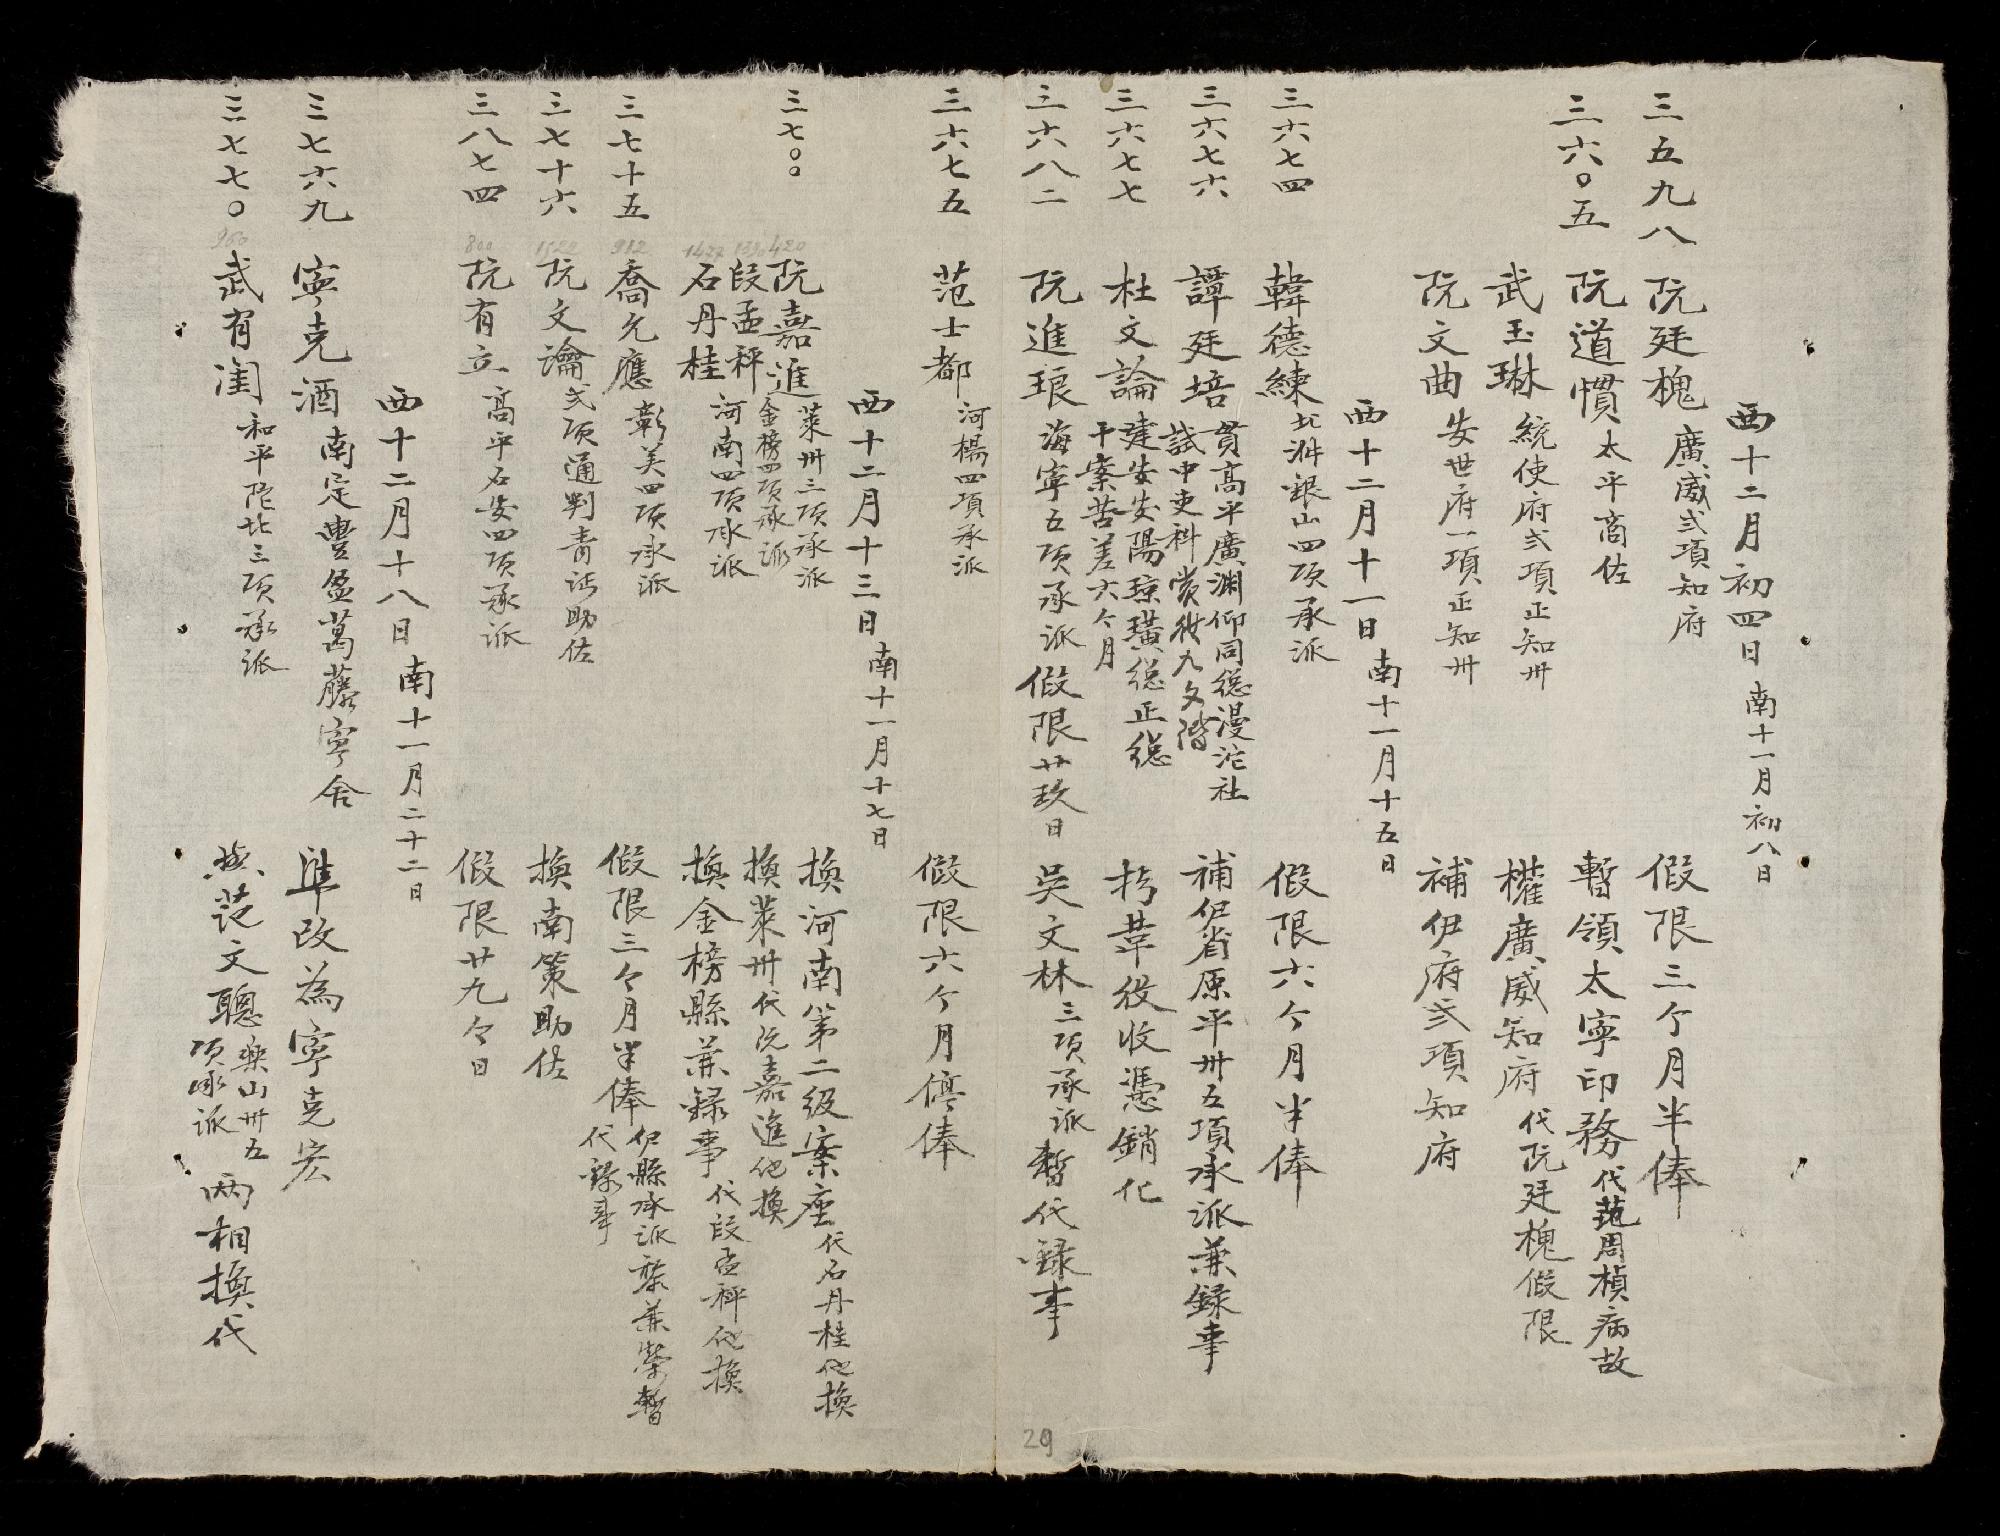 西十二月初四日 南十一月初八日
三五九八 阮廷槐 廣威弍項知府 假限三个月半俸
三六〇五 阮道慣 太平商佐 暫領太寧印務 代范周楨病故
武玉琳 統使府弍項正知州 權廣威知府 代阮廷槐假限
阮文曲 安世府一項正知州 補伊府弍項知府
西十二月十一日 南十一月十五日
三六七四 韓德練 北淋銀山四項承派 假限六个月半俸
三六七六 譚廷培 貫高平廣淵仰同總漫沱社
試中吏科賞攽九文階 補伊省原平州五項承派兼録事
三六七七 杜文論 建安安陽琼璜總正總
干案苦差六个月 抅葦役收憑銷化
三六八二 阮進琅 海寧五項承派 假限廿玖日 吳文林 三項承派 暫代録事
三六七五 范士都 河楊四項承派 假限六个月停俸
西十二月十三日 南十一月十七日
三七〇〇 420 阮嘉進 萊州三項承派 換河南第二級案座 代石丹桂他換
段孟秤 金榜四項承派 換萊州 代阮嘉進他換
1477 石丹桂 河南四項承派 換金榜縣兼録事 代段孟秤他換
三七十五 912 喬允應 彰美四項承派 假限三个月半俸 伊縣承派
代錄事
三七十六 1522 阮文瀹 弍項通判青沔助佐 換南策助佐
三八七四 800 阮有立 高平石安四項承派 假限廿九个日
西十二月十八日 南十一月二十二日
三七六九 寧克酒 南定豊盈萬藤寧舍 準改為寧克宏
三七七〇 960 武有闈 和平陀北三項承派 換范文聰 樂山州五
項承派 兩相換代
29